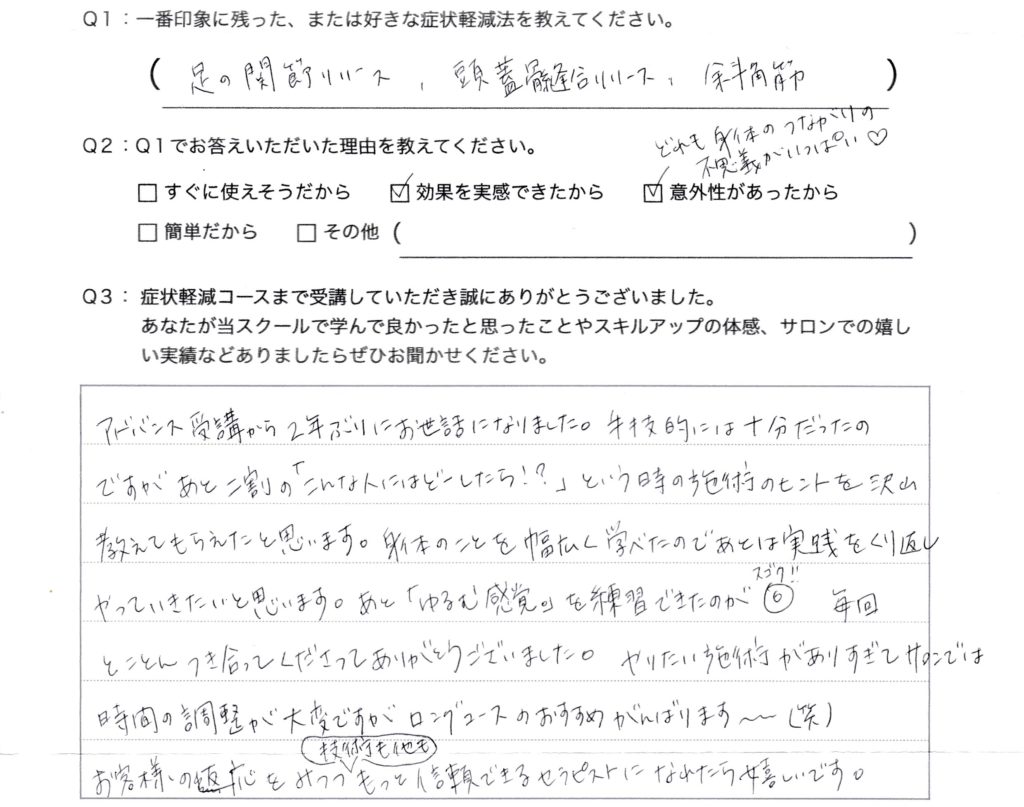 Q1：一番印象に残った、または好きな症状軽減法を教えてください。
( 足の関節リリース , 頭蓋骨縫合リリース , 斜角筋 )
どれも身体のつながりの
不思議がいっぱい♡
Q2：Q1でお答えいただいた理由を教えてください。
□ すぐに使えそうだから ☑ 効果を実感できたから ☑ 意外性があったから
□ 簡単だから □ その他 ( )
Q3： 症状軽減コースまで受講していただき誠にありがとうございました。
あなたが当スクールで学んで良かったと思ったことやスキルアップの体感、サロンでの嬉し
い実績などありましたらぜひお聞かせください。
アドバンス受講から2年ぶりにお世話になりました。手技的には十分だったの
ですが あと二割の「こんな人にはどーしたら!?」という時の施術のヒントを沢山
教えてもらえたと思います。身体のことを幅広く学べたのであとは実践をくり返し
スゴク!!
やっていきたいと思います。あと「ゆるむ感覚。」を練習できたのが 毎回
とことんつき合ってくださってありがとうございました。 やりたい施術がありすぎてサロンでは
時間の調整が大変ですがロングコースのおすすめがんばります〜〜(笑)
技術も他も
お客様の反応をみつつもっと信頼できるセラピストになれたら嬉しいです。